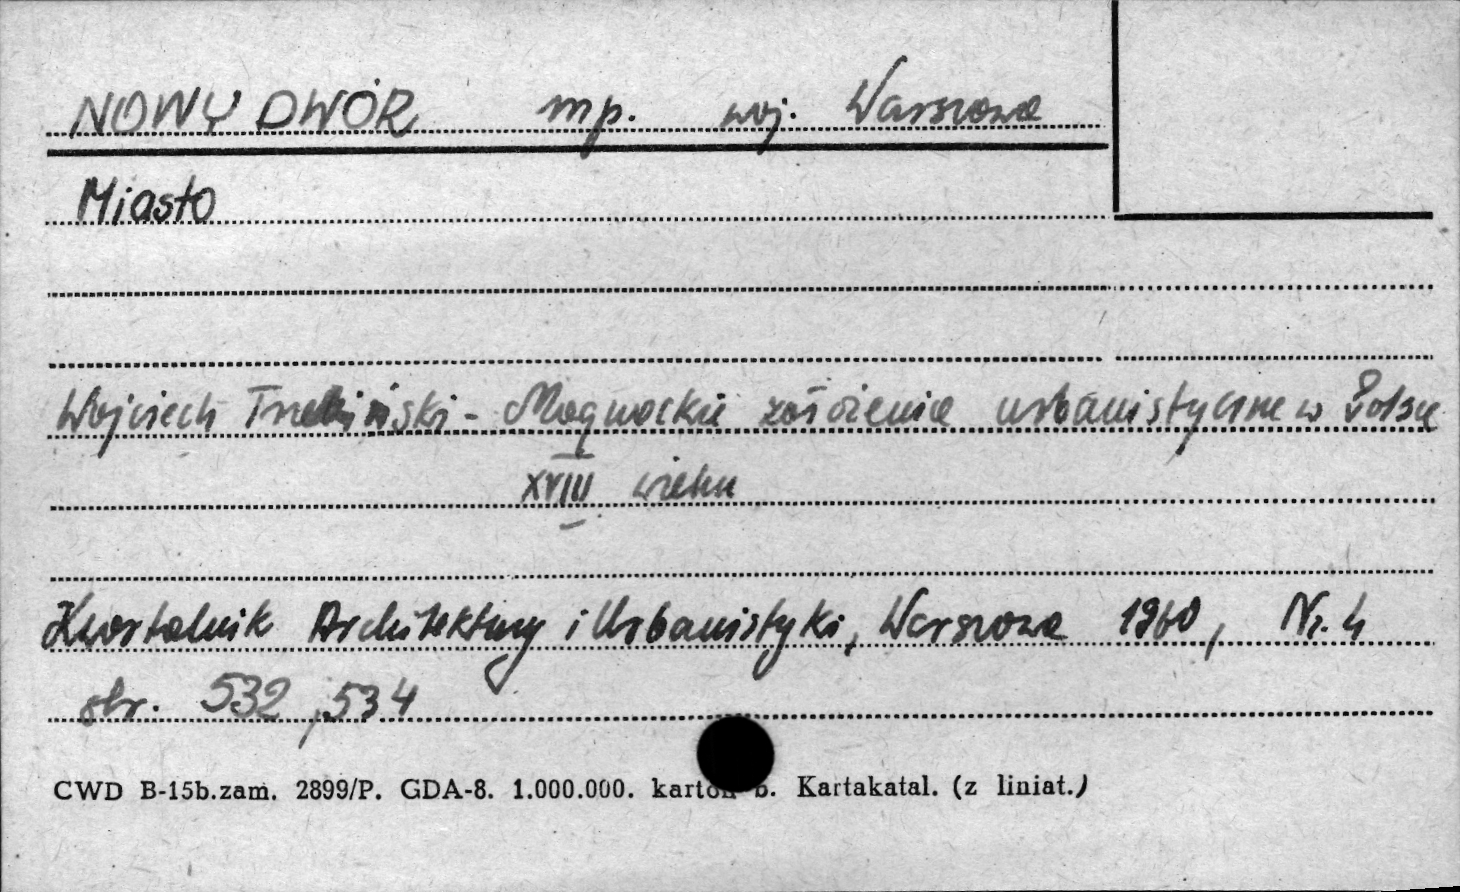 NOWY DWÓR mp. woj. Warszawa
Miasto
Wojciech Trzebiński - Magnackie założenia urbanistyczne w Polsce
XVIII wieku
Kwartalnik Architektury i Urbanistyki, Warszawa 1960, Nr. 4
str. 532, 534
CWD B-15b.zam. 2899/P. GDA-8. 1.000.000. karton b. Kartakatal. (z liniat.)